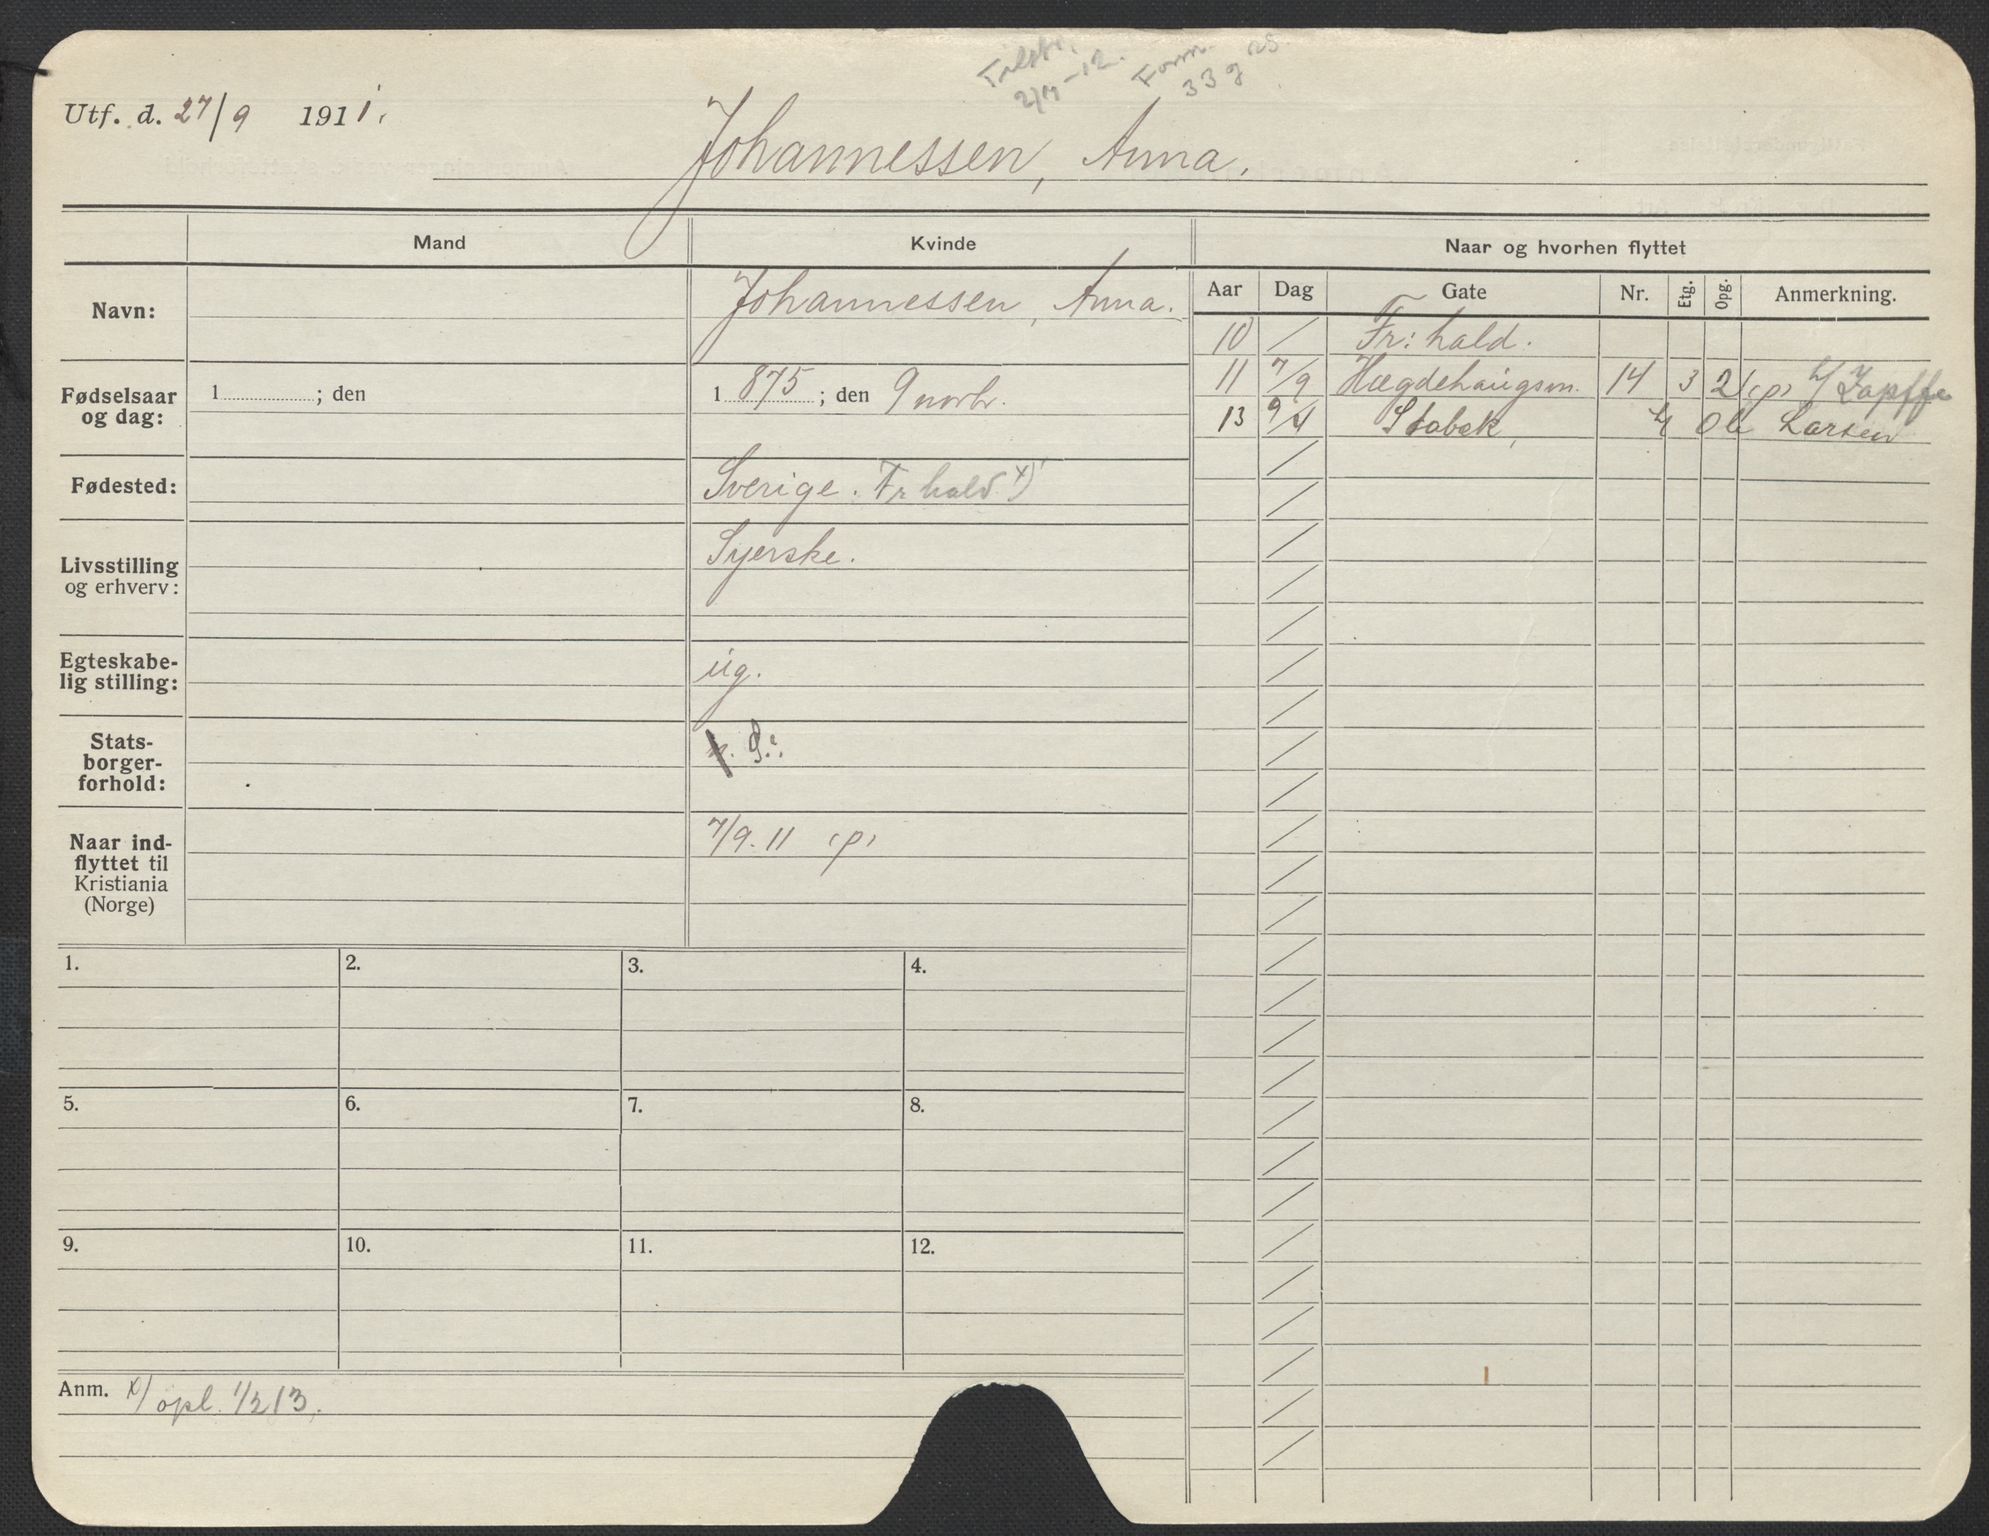 Utf. d. 27/9 1911.
Johannessen, Anna.
Mand
Kvinde
Naar og hvorhen flyttet
Aar Dag Gate Nr. Etg. Opg. Anmerkning.
Navn:
Johannessen, Anna.
Fødselsaar
og dag:
1 ; den
1 875 ; den 9 novbr.
Fødested:
Sverige. Fr hald x)
Livsstilling
og erhverv:
Syerske.
Egteskabe-
lig stilling:
ug.
Stats-
borger-
forhold:
Naar ind-
flyttet til
Kristiania
(Norge)
7/9. 11 (p)
10 / Fr: hald.
11 7/9 Hægdehaugsvn. 14 3 2 (p) h/ Zapffe
13 9/4 Stabæk, h/ Ole Larsen
1. 2. 3. 4.
5. 6. 7. 8.
9. 10. 11. 12.
Anm. x/ opl. 1/2 13.